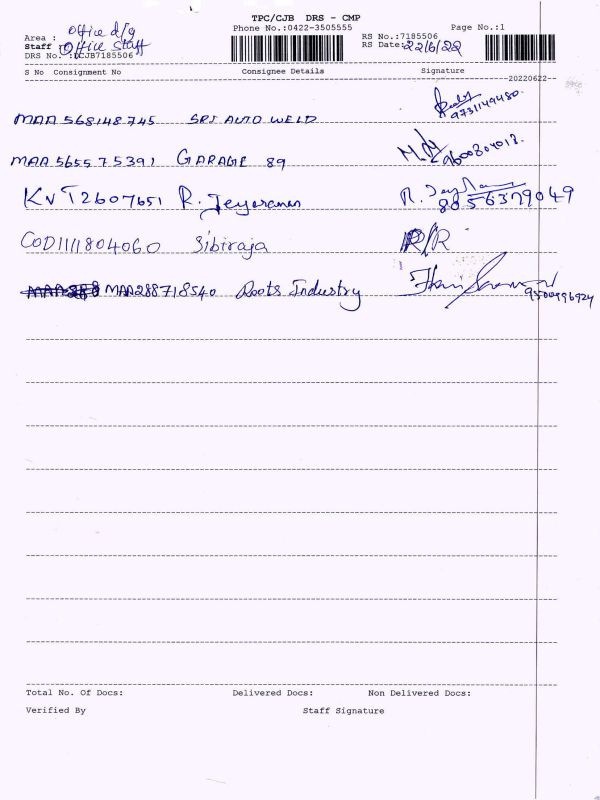 TPC/CJB DRS - CMP
Phone No.:0422-3505555
RS No.:7185506
Page No.:1
Area : Office d/g
Staff : Office Staff
RS Date: 22/6/22
DRS No. :DCJB7185506
S No Consignment No Consignee Details Signature
20220622
MAA 568148745 SRI AUTO WELD 9731149480
MAA 565575391 GARAGE 89 9600804013
KVT2607651 R. Jeyaraman 8056379049
COD1111804060 Sibiraja R/R
MAA288718540 Roots Industry 9500996924
Total No. Of Docs: Delivered Docs: Non Delivered Docs:
Verified By Staff Signature